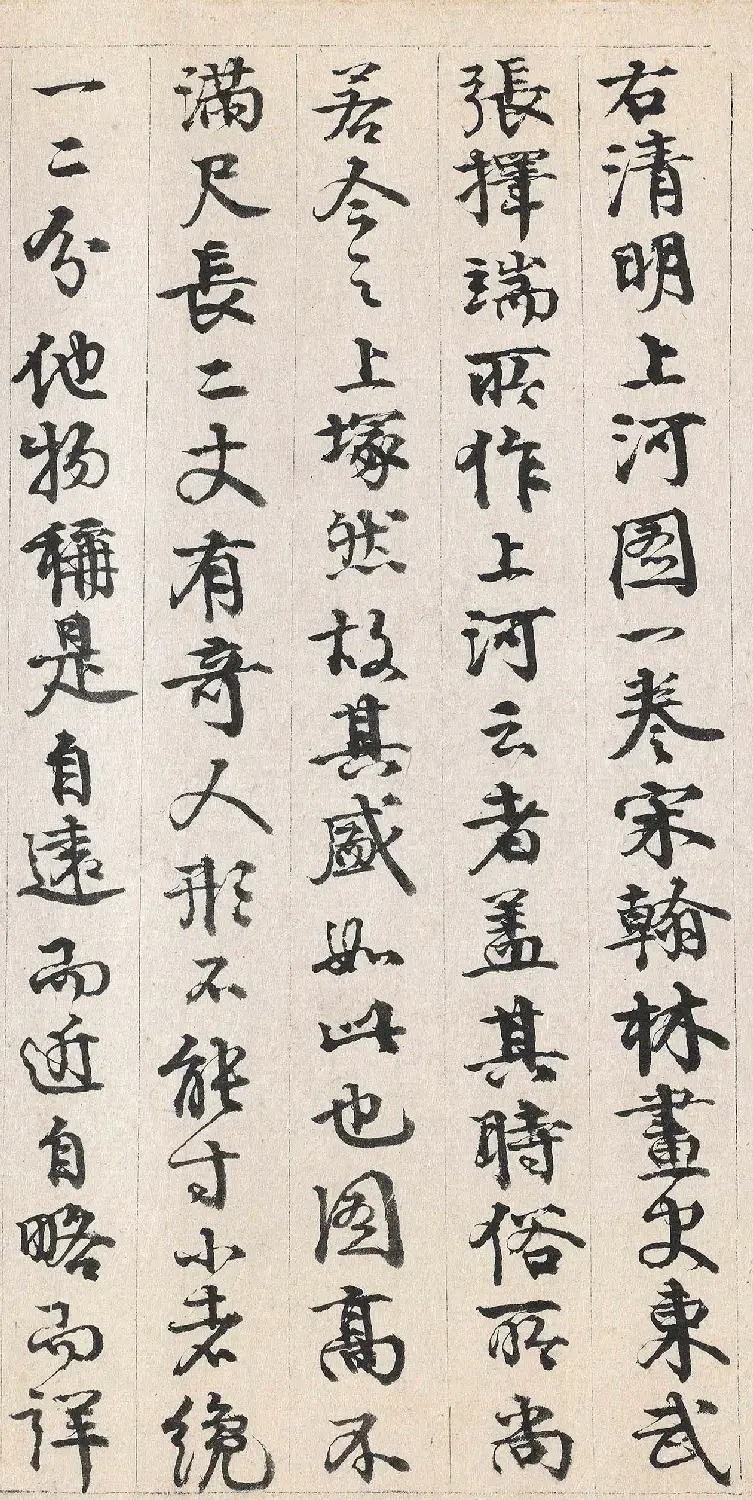 右清明上河图一卷宋翰林畫史東武
張擇端所作上河云者盖其時俗所尚
若今之上塚然故其盛如此也图髙不
滿尺長二丈有奇人形不能寸小者纔
一二分他物稱是自遠而近自略而詳